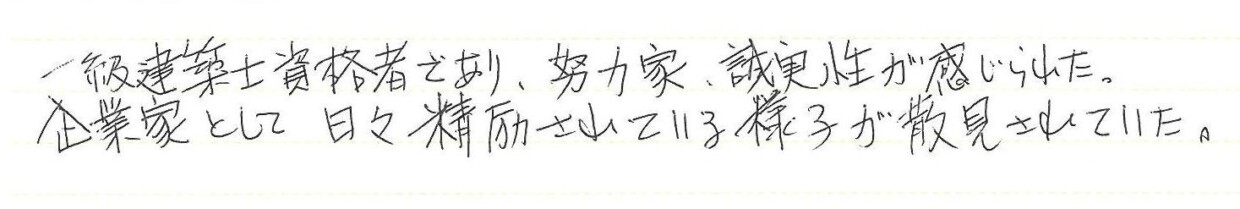 一級建築士資格者であり、努力家、誠実性が感じられた。
企業家として 日々精励されている様子が散見されていた。